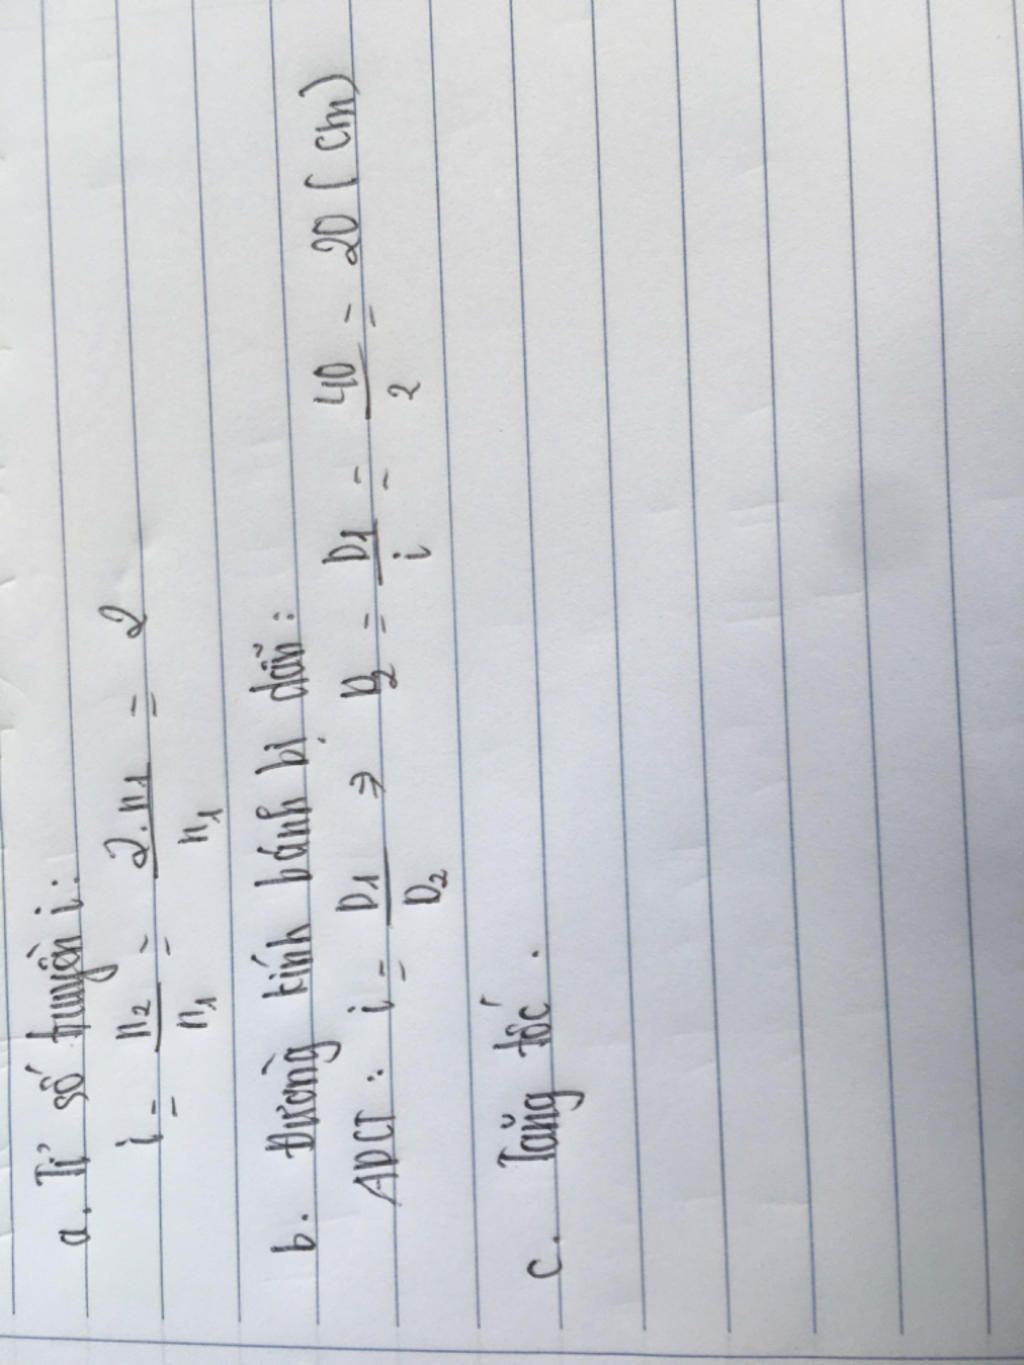 a. Tỉ số truyền i:
i = n2/n1 = 2.n1/n1 = 2
b. Đường kính bánh bị dẫn:
ADCT: i = D1/D2 => D2 = D1/i = 40/2 = 20 (cm)
c. Tăng tốc.